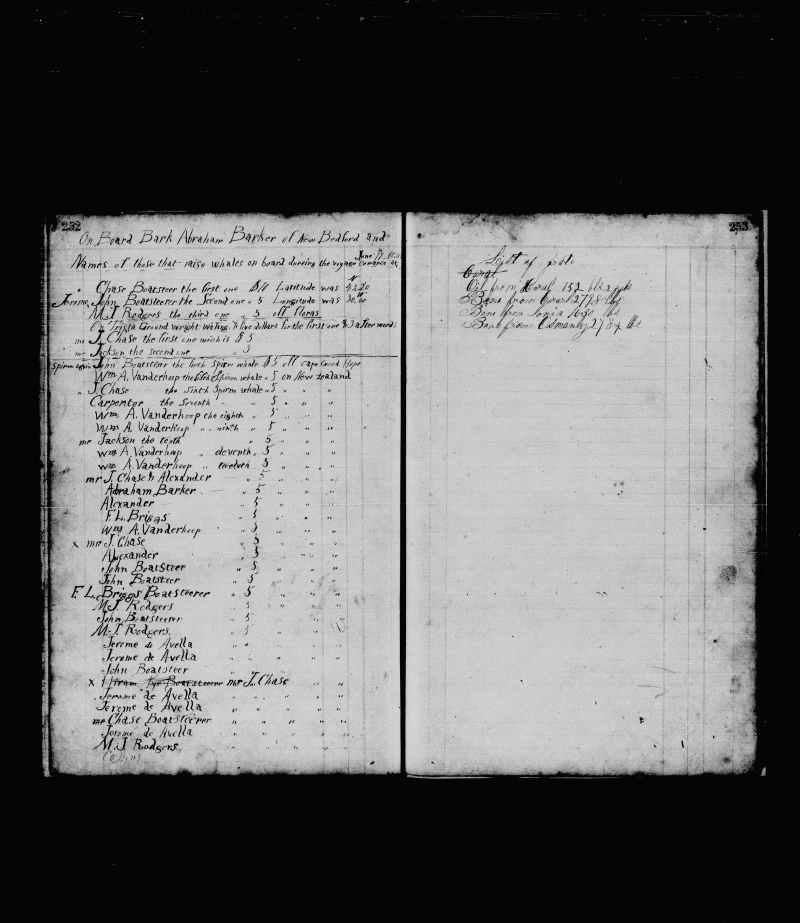 252
On Board Bark Abraham Barker of New Bedford and
Names of those that raise whales on board dureing the voyage June 17
Chase Boatsteer the first one $11 Latitude was 42.20
Jerome, John Boatsteerer the Second one " 5 Longitude was 30.00
M. J. Rodgers the third one " 5 off floras
On Trista Ground wright waling five dollars for the first one & 3 after words
mr J. Chase the first one wich is $ 5
mr Jackson the second one " 5
Spirm John Boatsteerer the Spirm whale $5 off cape Good Hope
Wm A. Vanderhoop the Spirm whale " 5 on New zealand
" J. Chase the sixth Spirm whale " 5 " "
Carpenter the seventh " " 5 " " "
Wm. A. Vanderhoop the eighth " 5 " " "
Wm A. Vanderhoop " " ninth " 5 " " "
mr Jackson the tenth " 5 " " "
Wm A. Vanderhoop " eleventh " 5 " " "
Wm A. Vanderhoop " twelveth " 5 " " "
mr J. Chase & Alexander " 5 " " "
Abraham Barker " 5 " " "
Alexander " 5 " " "
F. L. Briggs " 5 " " "
Wm A. Vanderhoop " 5 " " "
x mr J. Chase " 5 " " "
Alexander " 5 " " "
John Boatsteer " 5 " " "
John Boatsteer " 5 " " "
F. L. Briggs Boatsteerer " 5 " " "
M. J. Rodgers " 5 " " "
John Boatsteerer " 5 " "
M. J. Rodgers " 5 " "
Jerome de Avella " " " "
Jerome de Avella " " " "
John Boatsteer " " " "
x Hiram Boatsteerer mr J. Chase " "
Jerome de Avella " " " " "
Jerome de Avella " " " " "
mr Chase Boatsteerer " " " " "
Jerome de Avella " " " " "
M. J. Rodgers " " " " "
253
List of
Coral
Oil from Coral 152 bls
Bone from Coral 2778 lbs
Bone from 1690 lbs
Bone from 2784 lbs